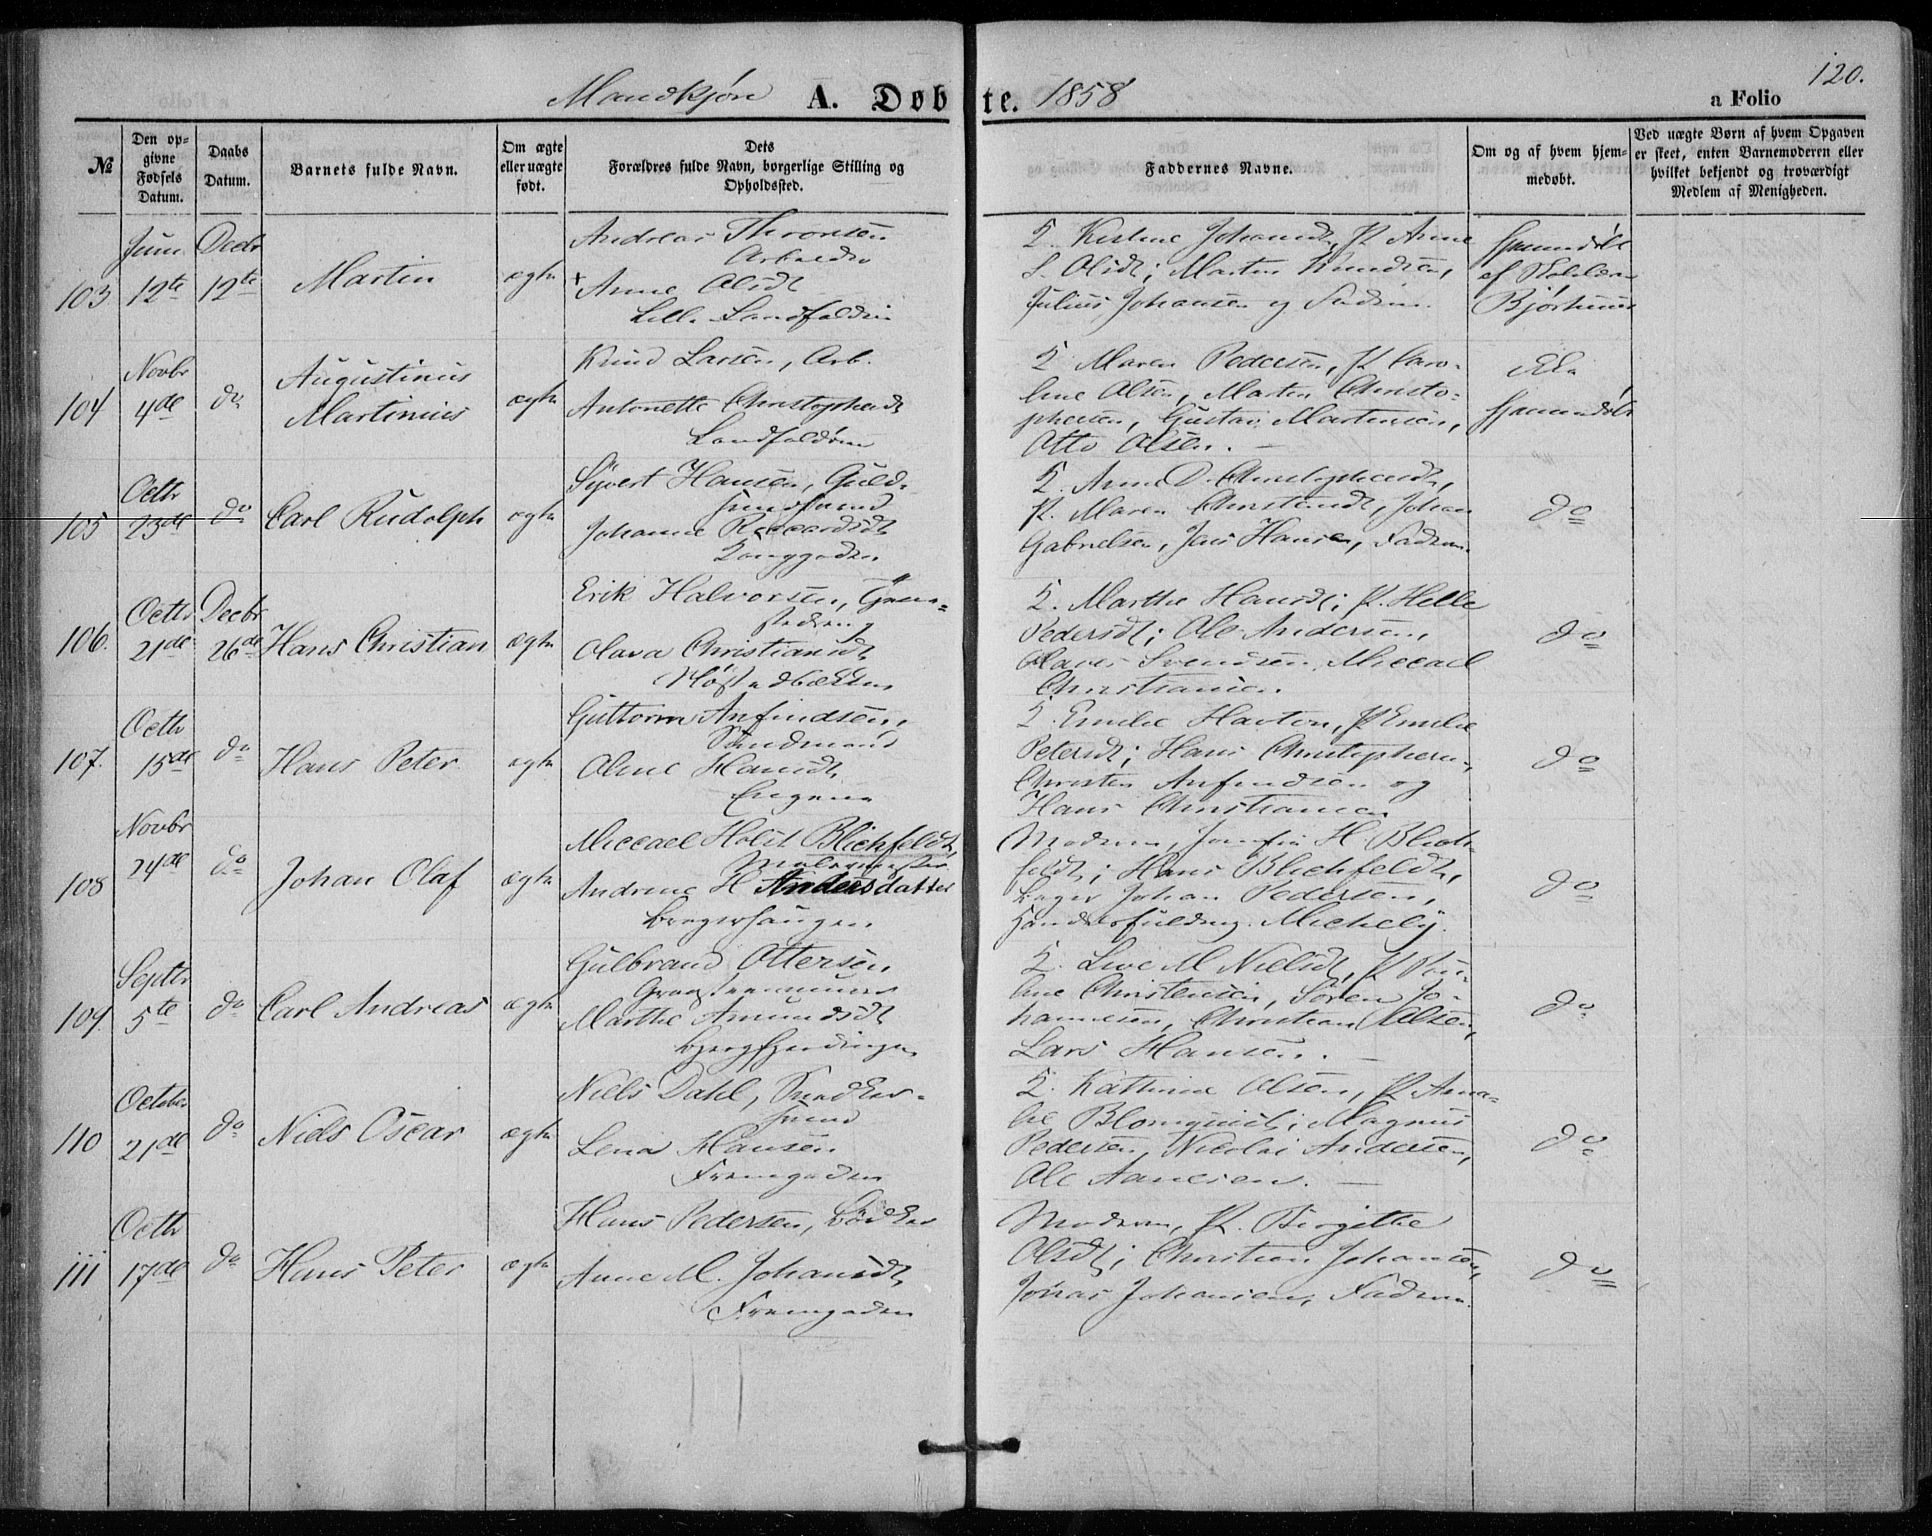 120.
Mandkjøn A. Døbte. 1858 a Folio
№
Den op-
givne
Fødsels
Datum.
Daabs
Datum.
Barnets fulde Navn.
Om ægte
eller uægte
født.
Dets
Forældres fulde Navn, borgerlige Stilling og
Opholdssted.
Faddernes Navne.
Om og af hvem hjem-
medøbt.
Ved uægte Børn af hvem Opgaven
er skeet, enten Barnemoderen eller
hvilket bekjendt og troværdigt
Medlem af Menigheden.
103
Juni
12te
Decbr
12te
Martin
ægte
Andreas Thronsen
Arbeider
+ Anne Olsdt
Lille Landfalden
K. Kirstine Johansdt, P. Anne
S. Olsdt; Martin Knudsen,
Julius Johansen og Faderen.
Hjemmedøbt
af
104
Novbr
4de
do
Augustinus
Martinius
ægte
Knud Larsen, Arb.
Antonette Christophersdt
Landfaldøen
K. Maren Pedersen, P. Caro-
line Olsen, Martin Christo-
phersen, Gustav Martinsen,
Otto Olsen.
Ikke
Hjemmedøbt
105
Octbr
23de
do
Carl Rudolph
ægte
Syvert Hansen, Guld-
smedsvend
Johanne
Konggaden
K. Anne D. Christophersdt,
P. Maren Christensdt, Johan
Gabrielsen, Jens Hansen, Faderen.
do
106.
Octbr
21de
Decbr
26de
Hans Christian
ægte
Erik Halvorsen,
Olava Christiansdt
K. Marthe Hansdt; P. Helle
Pedersdt; Ole Andersen,
Svendsen, Miccael
Christiansen.
do
107.
Octbr
15de
do
Hans Peter
ægte
Guttorm Anfindsen,
Sandmand
Oline Hansdt,
Engene
K. Emilie Havton, P. Emilie
Petersdt; Hans Christophersen,
Christen Anfindsen og
Hans Christiansen
do
108
Novbr
24de
do
Johan Olaf
ægte
Miccael Holst Blichfeldt,
Malermester
Andrine H Andersdatter
Bragerhaugen
Moderen, Jomfru H. Blich-
feldt; Hans Blichfeldt,
Bager Johan Pedersen,
Handelsfuldmg. Michely.
do
109.
Septbr
5te
do
Carl Andreas
ægte
Gulbrand Ottersen,
Marthe Amundsdt
K. Live M Nielsdt, P. Pau-
line Christensen, Søren Jo-
hannesen, Christian Olsen,
Lars Hansen.
do
110
October
21de
do
Niels Oscar
ægte
Niels Dahl, Snedker-
svend
Lena Hansen
Fremgaden
K. Kathrine Olsen, P. Ama-
lie Blomquist; Magnus
Pedersen, Nicolai Andersen,
Ole Aanesen.
do
111
Octbr
17de
do
Hans Peter
ægte
Hans Pedersen, Bødker
Anne M. Johansdt,
Fremgaden
Moderen, P. Birgithe
Olsdt; Christian Johansen,
Jonas Johansen, Faderen.
do